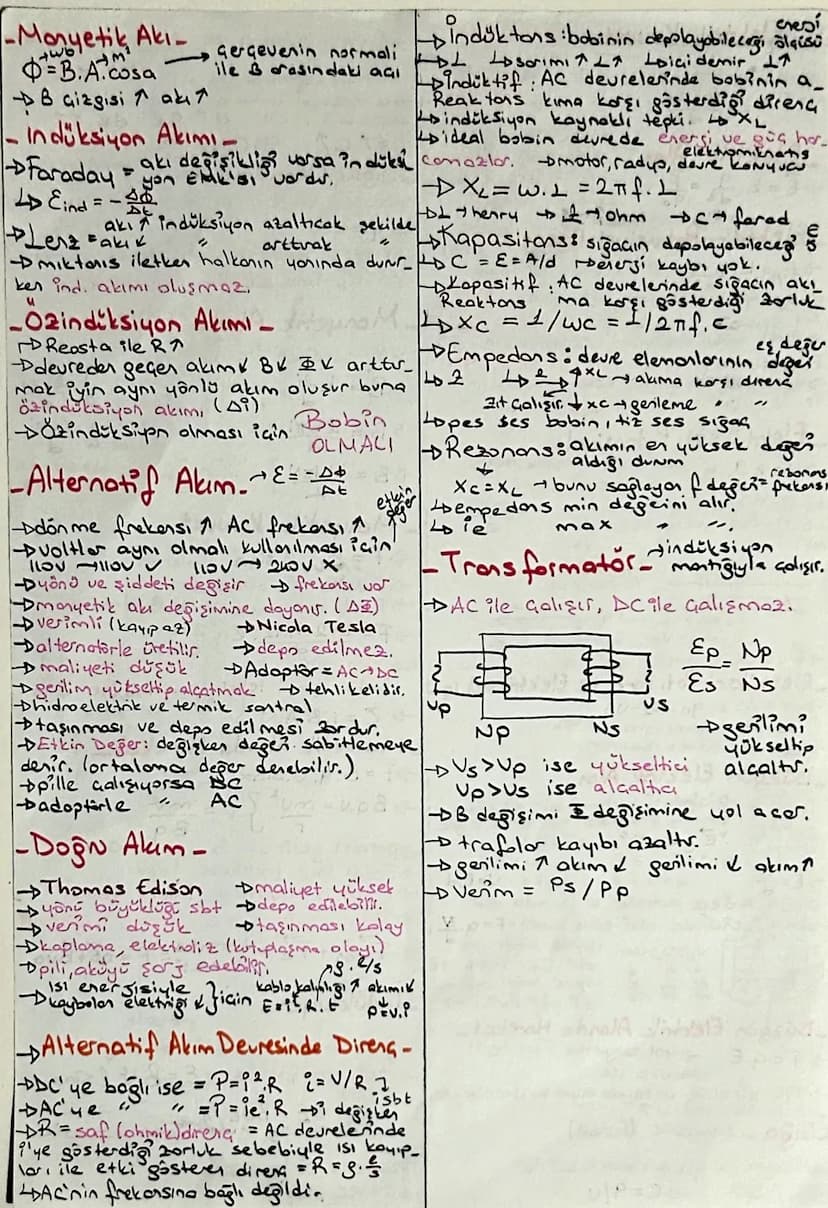 -Manyetik Akı-
Φ=B.A.cosa → çerçevenin normali
wb m² ile B arasındaki açı
→ B çizgisi ↑ akı ↑
- İndüksiyon Akımı -
→ Faraday = akı değişikliği varsa indüksi
yon etkisi vardır.
↳ Ɛind = - ΔΦ/Δt
→ Lenz = akı ↑ indüksiyon azaltıcak şekilde
akı ↓ " arttırak "
→ mıktanıs iletken halkanın yanında durur_
ken ind. akımı oluşmaz.
-Özindüksiyon Akımı-
→ Reosta ile R↑
→ devreden geçen akım↓ B↓ Φ↓ arttır_
mak için aynı yönlü akım oluşur buna
özindüksiyon akımı (Δi)
→ Özindüksiyon olması için Bobin
OLMALI
-Alternatif Akım- → Ɛ = -ΔΦ/Δt
etkin
değer
→ dönme frekansı ↑ AC frekansı ↑
→ voltlar aynı olmalı kullanılması için
110V → 110V ✓ 110V → 240V X
→ yönü ve şiddeti değişir → frekansı var
→ manyetik akı değişimine dayanır. (ΔΦ)
→ verimli (kayıp az) → Nicola Tesla
→ alternatörle üretilir. → depo edilmez.
→ maliyeti düşük → Adaptör = AC→DC
→ gerilim yükseltip alçatmak → tehlikelidir.
→ hidroelektrik ve termik santral
→ taşınması ve depo edilmesi zordur.
→ Etkin Değer: değişken değeri sabitlemeye
denir. (ortalama değer denebilir.)
→ pille çalışıyorsa DC
→ adaptörle " AC
-Doğru Akım-
→ Thomas Edison → maliyet yüksek
→ yönü büyüklüğü sbt → depo edilebilir.
→ verimi düşük → taşınması kolay
→ kaplama, elektroliz (kutuplaşma olayı)
→ pili, aküyü şarj edebilir. ↗ρ.l/s
→ ısı enerjisiyle } için kablo kalınlığı ↑ akımı↓
kaybolan elektriği ↓ E=i².R.t P=V.i
→ Alternatif Akım Devresinde Direnç -
→ DC'ye bağlı ise = P=i².R i=V/R
↓ i sbt
→ AC'ye " " = P=ie².R → i değişken
→ R = saf (ohmik) direnç = AC devrelerinde
i'ye gösterdiği zorluk sebebiyle ısı kayıp_
ları ile etki gösteren direnç = R=ρ.l/s
↳ AC'nin frekansına bağlı değildi.
→ İndüktans: bobinin depolayabileceği enerji ölçüsü
↳ L ↳ sarımı ↑ L↑ ↳ içi demir L↑
→ İndüktif : AC devrelerinde bobinin a_
Reaktans kıma karşı gösterdiği direnç
↳ indüksiyon kaynaklı tepki. ↳ XL
↳ ideal bobin devrede enerji ve güç har_
camazlar. → motor, radyo, elektromıknatıs devre koruyucu
→ XL = w.L = 2πf.L
→ L → henry → Ω → ohm → C → farad
→ Kapasitans: sığacın depolayabileceği E
↳ C = Ɛ = A/d → enerji kaybı yok.
→ Kapasitif : AC devrelerinde sığacın akı_
Reaktans ma karşı gösterdiği zorluk
↳ Xc = 1/wc = 1/2πf.c
→ Empedans: devre elemanlarının eş değer değeri
↳ Z ↳ R → ↑XL → akıma karşı direnç
zıt çalışır. ↓ xc → gerileme " "
↳ pes ses bobin, tiz ses sığaç
→ Rezonans: akımın en yüksek değeri
aldığı durum
↓
Xc=XL → bunu sağlayan f değeri = rezonans frekansı
↳ empedans min değerini alır.
↳ ie max " ".
-Transformatör- → indüksiyon
mantığıyla çalışır.
→ AC ile çalışır, DC ile çalışmaz.
Ɛp/Ɛs = Np/Ns
Vp Vs
Np Ns
→ gerilimi
yükseltip
alçaltır.
→ Vs > Vp ise yükseltici
Vp > Vs ise alçaltıcı
→ B değişimi Φ değişimine yol açar.
→ trafolar kayıbı azaltır.
→ gerilimi ↑ akım ↓ gerilimi ↓ akım ↑
→ Verim = Ps / Pp